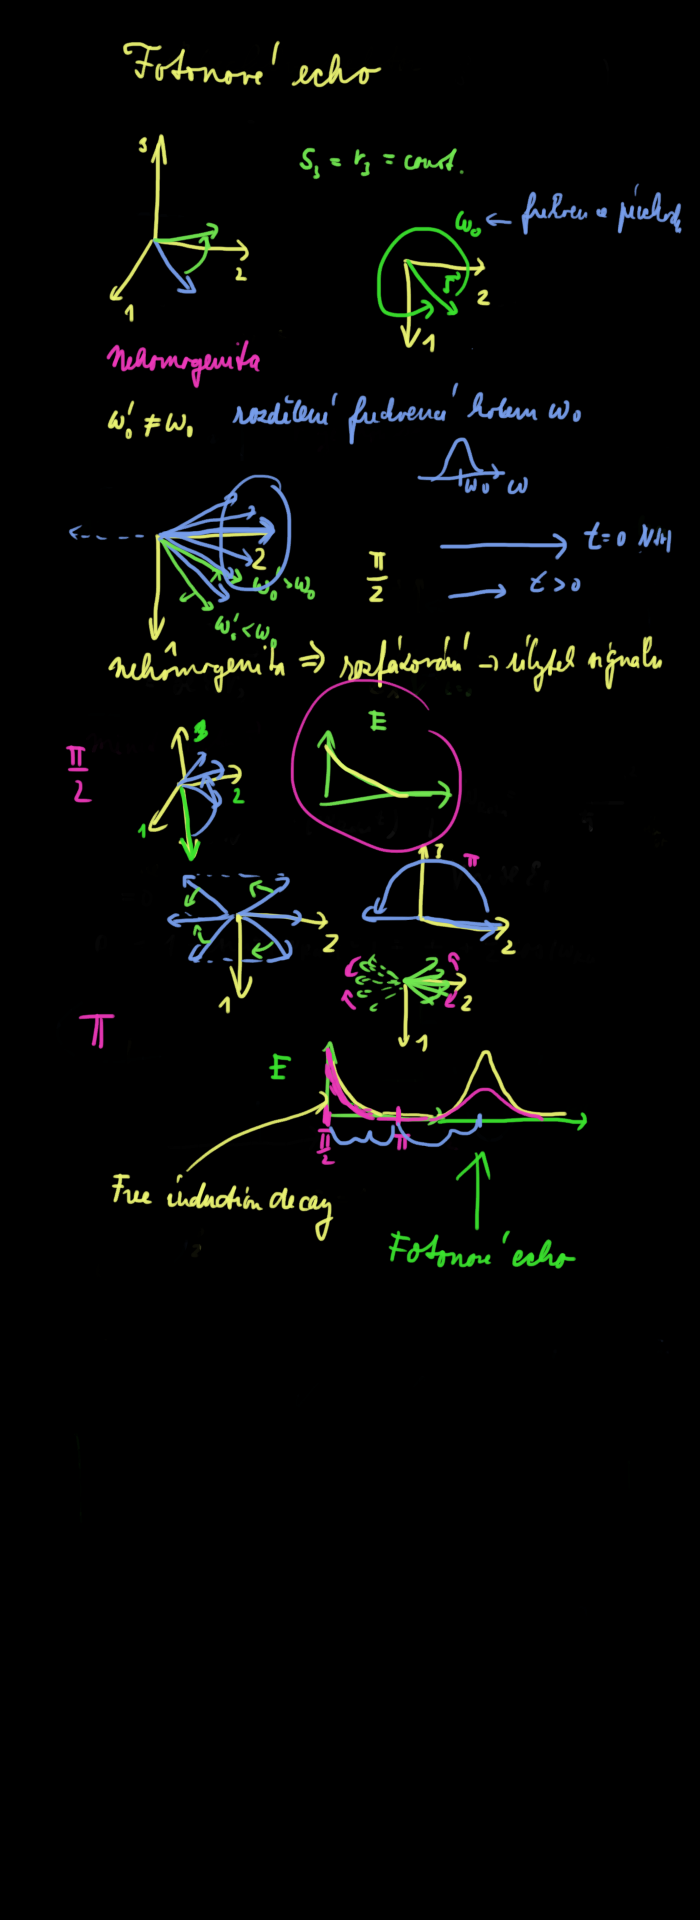 Fotonové echo
3
2
1
S₃ = r₃ = const.
ω₀ ←
2
1
Nehomogenita
ω₀' ≠ ω₀ rozdělení frekvencí kolem ω₀
ω₀ ω
2
ω₀' > ω₀
ω₀' < ω₀
1
π/2
t = 0
t > 0
nehomogenita ⇒ rozfázování → úbytek signálu
π/2
3
2
1
E
2
1
3
π
2
2
1
π
E
π/2
π
Free induction decay
Fotonové echo